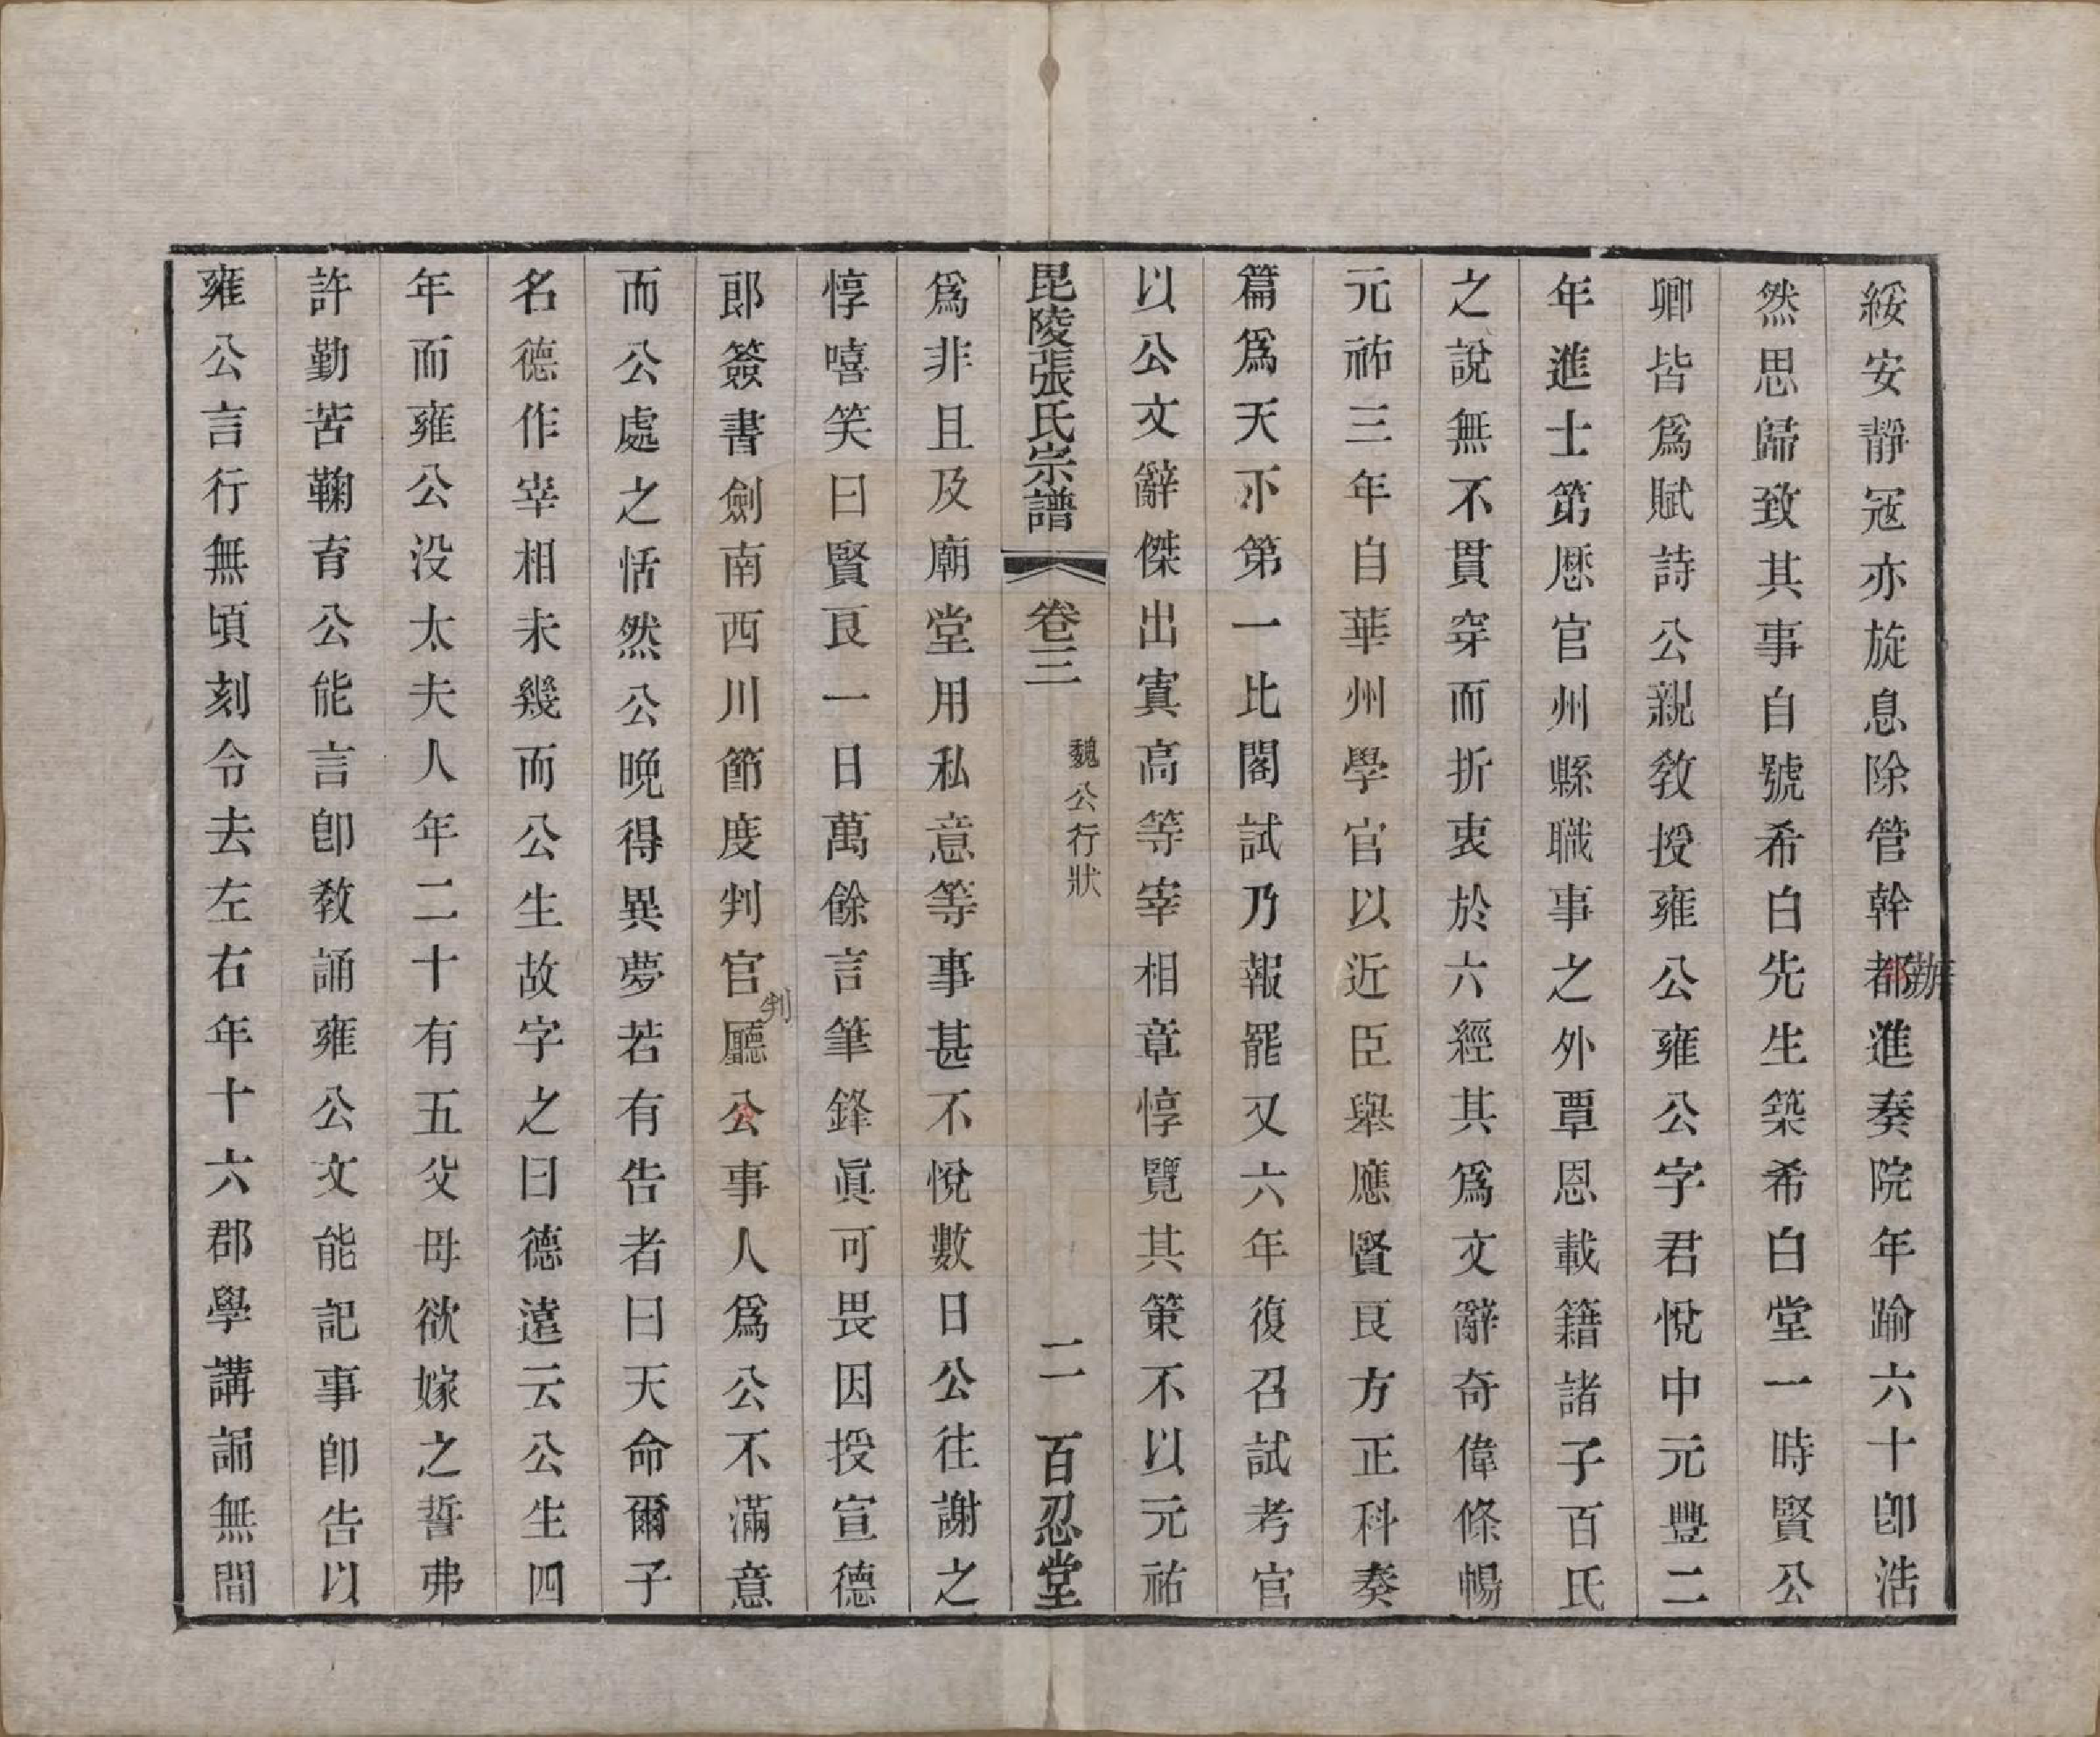 綏安靜冦亦旋息除管幹都進奏院年踰六十卽浩
辦
然思歸致其事自號希白先生築希白堂一時賢公
卿皆爲賦詩公親敎授雍公雍公字君悅中元豐二
年進士第歷官州縣職事之外覃恩載籍諸子百氏
之說無不貫穿而折衷於六經其爲文辭奇偉條暢
元祐三年自華州學官以近臣舉應賢良方正科奏
篇爲天下第一比閣試乃報罷又六年復召試考官
以公文辭傑出寘高等宰相章惇覽其策不以元祐
毘陵張氏宗譜 卷三 魏公行狀 二 百忍堂
爲非且及廟堂用私意等事甚不悅數日公往謝之
惇嘻笑曰賢良一日萬餘言筆鋒眞可畏因授宣德
郎簽書劍南西川節度判官廳公事人爲公不滿意
判
而公處之恬然公晚得異夢若有告者曰天命爾子
名德作宰相未幾而公生故字之曰德遠云公生四
年而雍公没太夫人年二十有五父母欲嫁之誓弗
許勤苦鞠育公能言卽敎誦雍公文能記事卽告以
雍公言行無頃刻令去左右年十六郡學講誦無間